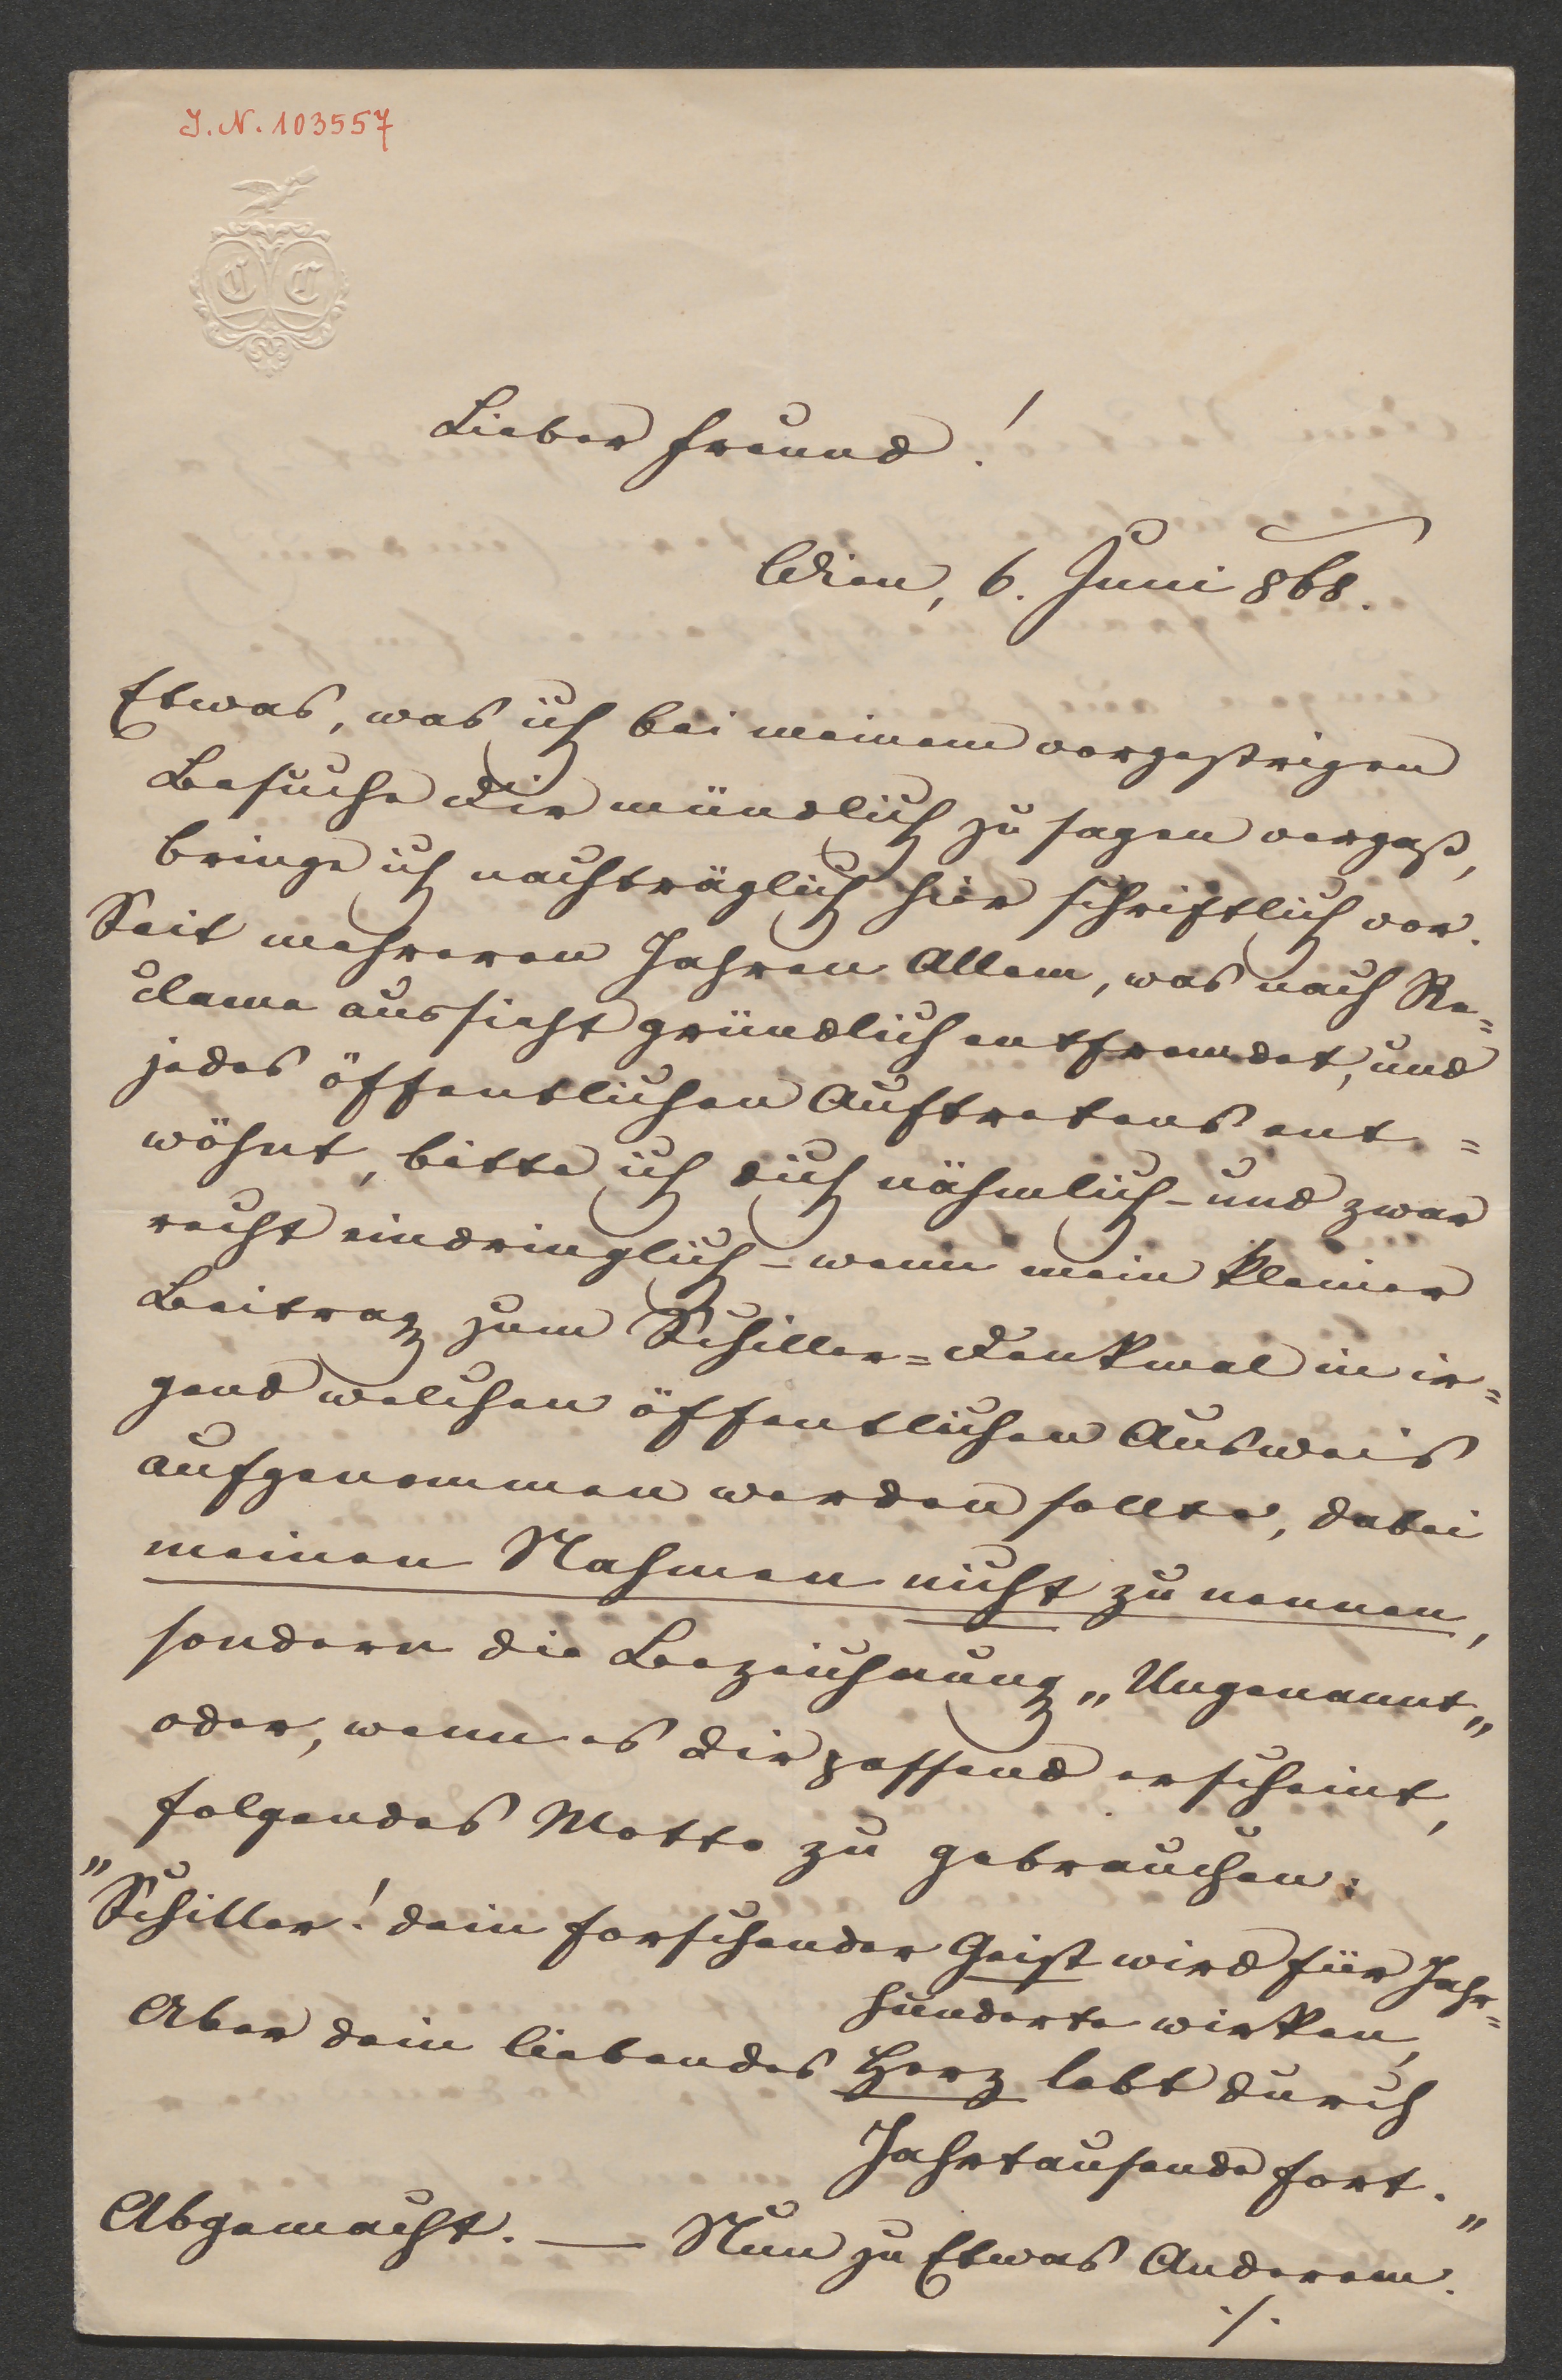 J. N. 103557
C C
Lieber Freund!
Wien, 6. Juni 868.
Etwas, was ich bei meinem vorgestrigen
Besuche dir mündlich zu sagen vergaß,
bringe ich nachträglich hier schriftlich vor.
Seit mehreren Jahren Allem, was nach Re=
clame aussieht gründlich entfremdet, und
jedes öffentlichen Auftretens ent=
wöhnt, bitte ich dich nähmlich – und zwar
recht eindringlich – wenn mein kleiner
Beitrag zum Schiller=Denkmal in ir=
gend welchen öffentlichen Ausweis
aufgenommen werden sollte, dabei
meinen Nahmen nicht zu nennen,
sondern die Bezeichnung „Ungenannt„
oder, wenn es dir passend erscheint,
folgendes Motto zu gebrauchen:
"Schiller! dein forschender Geist wird für Jahr=
hunderte wirken,
Aber dein liebendes Herz lebt durch
Jahrtausende fort."
Abgemacht. — Nun zu Etwas Anderem.
./.